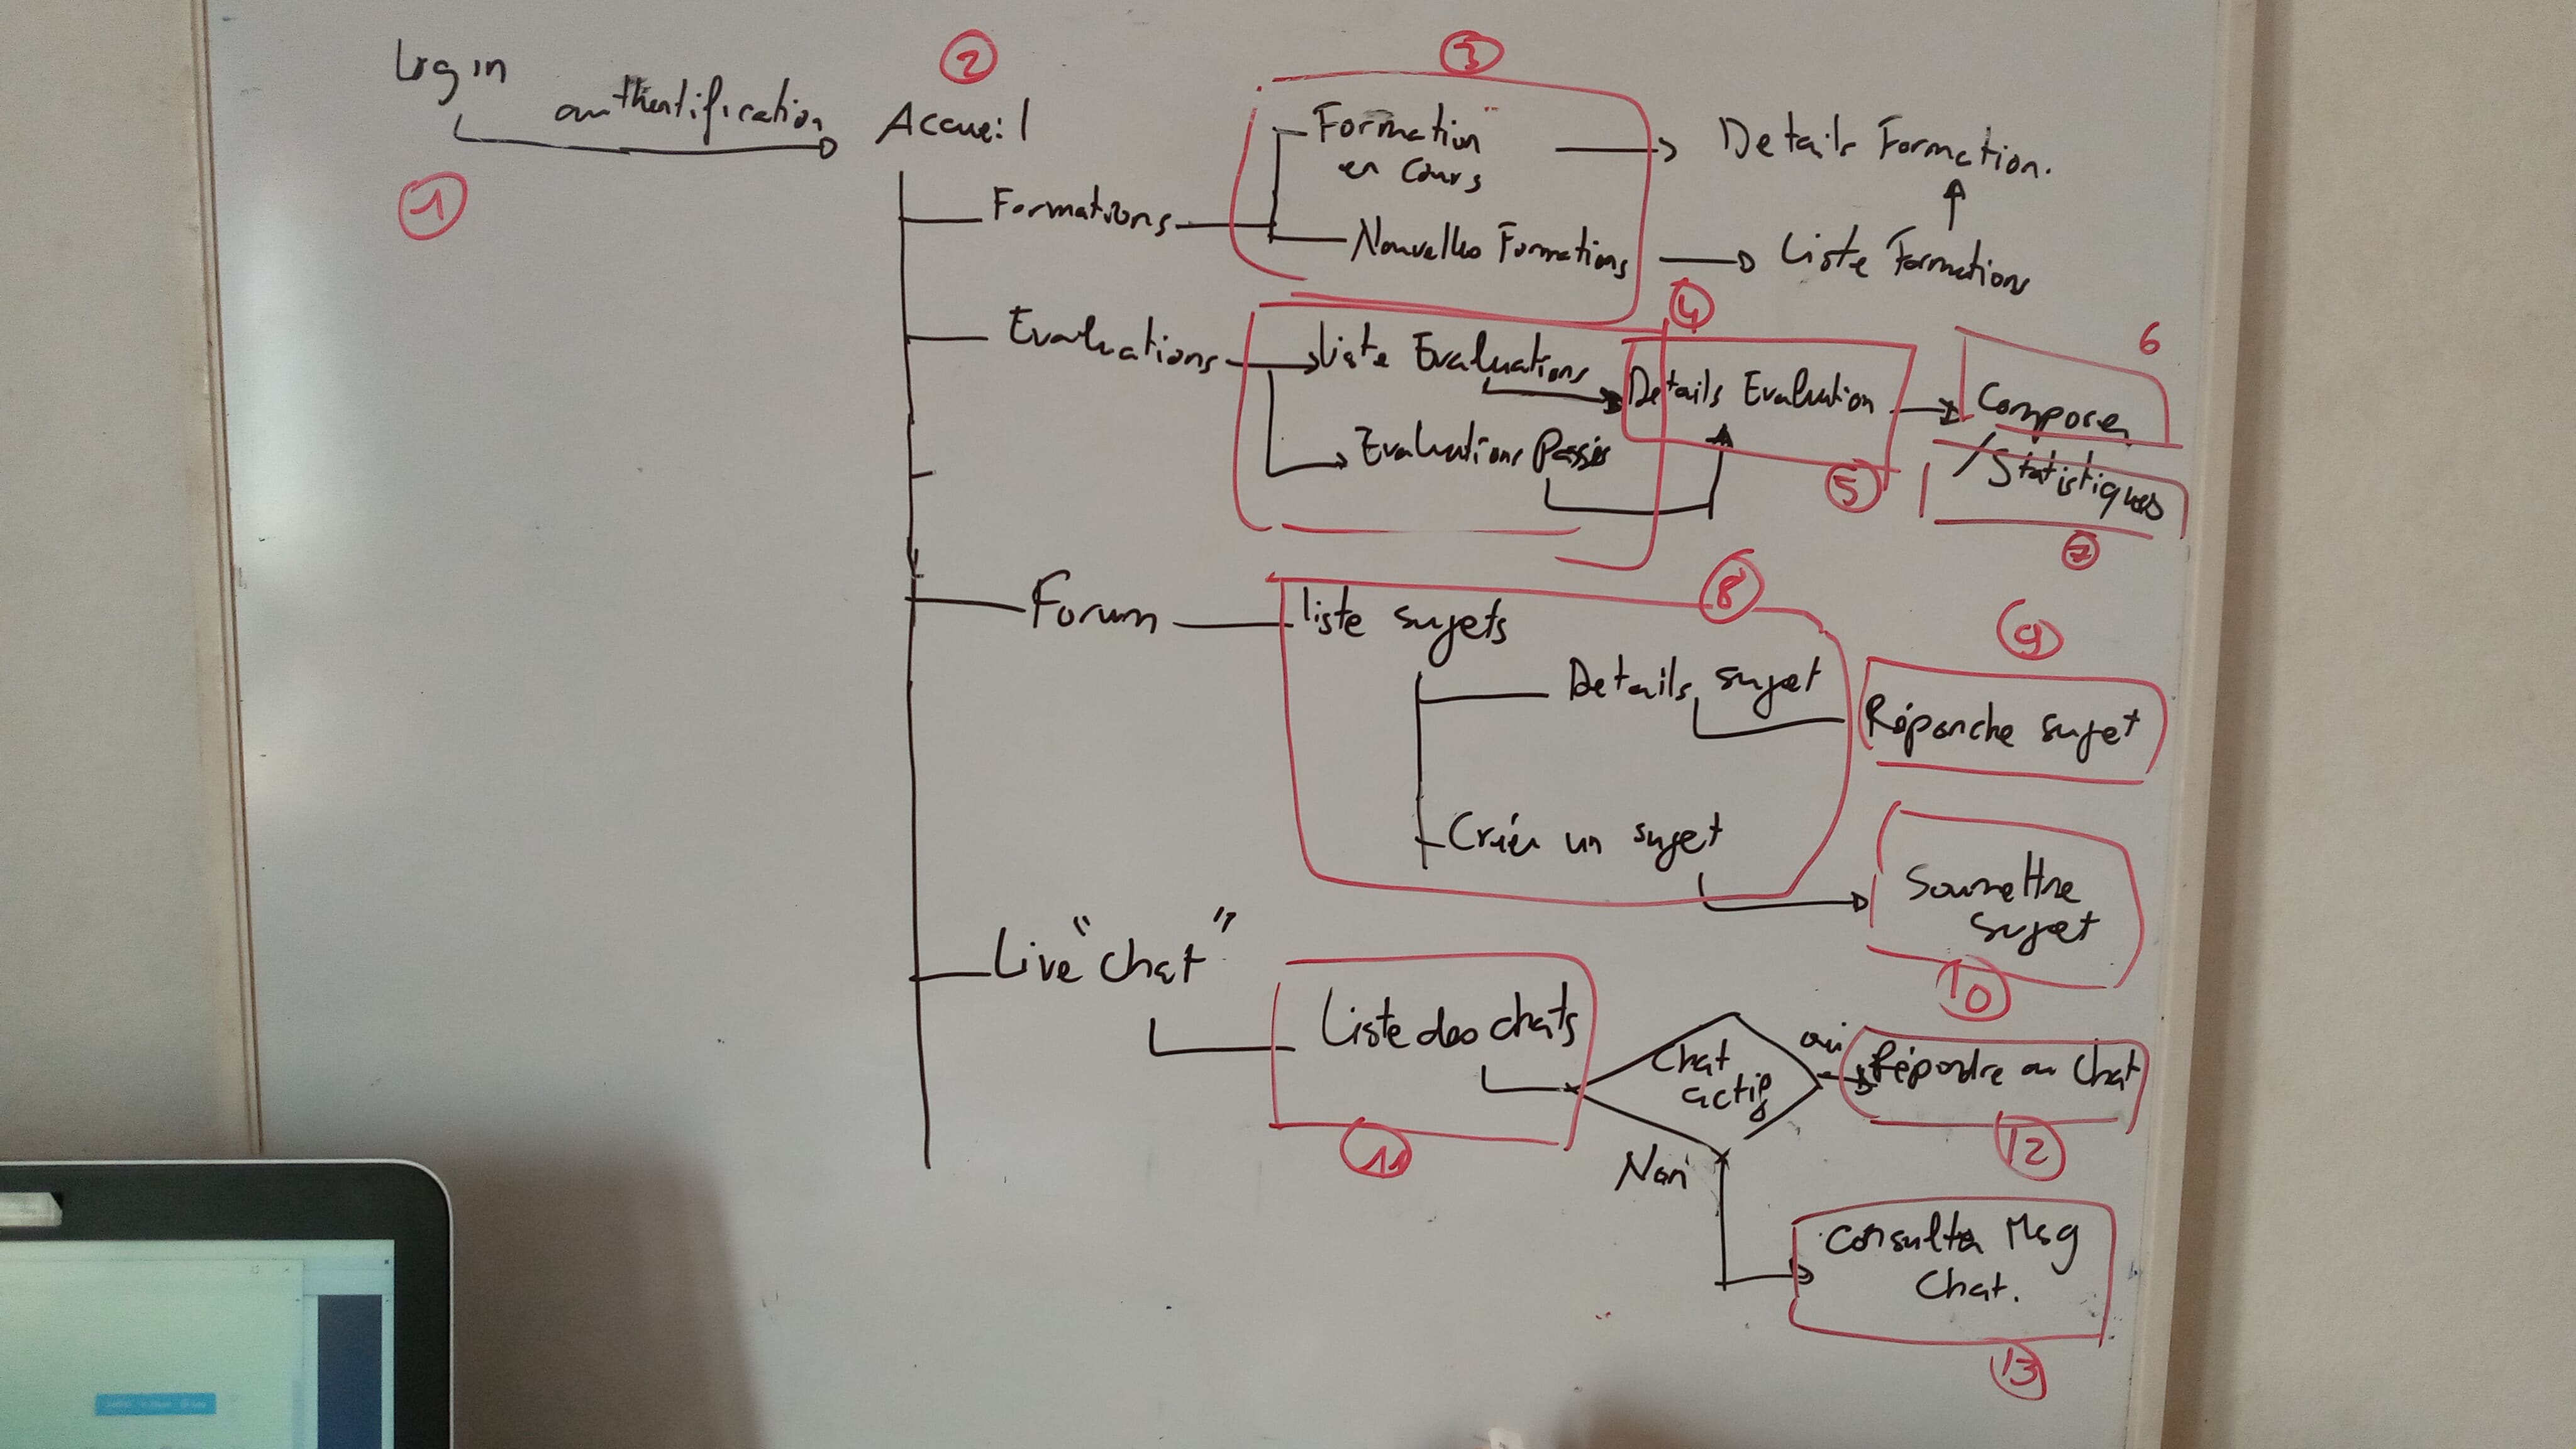 Login
authentification
1
2
Accueil
3
Formations
Formation
en cours
Details Formation.
Nouvelles Formations
Liste Formations
Evaluations
4
Liste Evaluations
Details Evaluation
6
Composer
Evaluations Passés
5
/Statistiques
7
Forum
8
liste sujets
9
Details sujet
Réponche sujet
Créer un sujet
Soumettre
sujet
10
Live "chat"
Liste des chats
11
Chat
actif
oui
Répondre au Chat
12
Non
Consulter Msg
Chat.
13